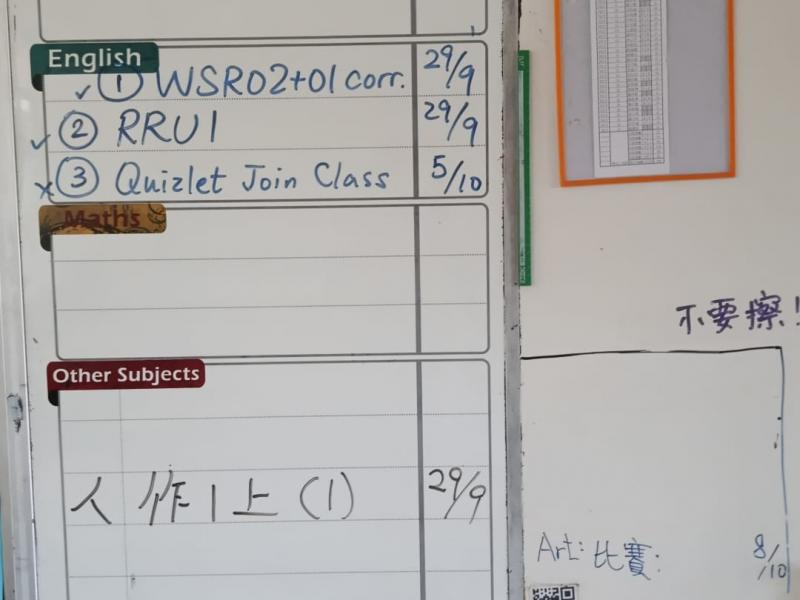 English
✓ ① WSR02+01 corr. 29/9
✓ ② RRU1 29/9
× ③ Quizlet Join Class 5/10
Maths
Other Subjects
人 作1上(1) 29/9
不要擦!
Art: 比賽: 8/10